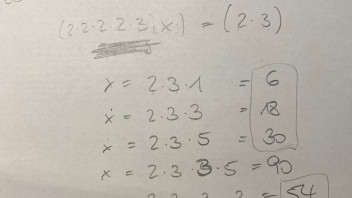 (2·2·2·2·3, x) = (2·3)
x = 2·3·1 = 6
x = 2·3·3 = 18
x = 2·3·5 = 30
x = 2·3·3·5 = 90
= 54